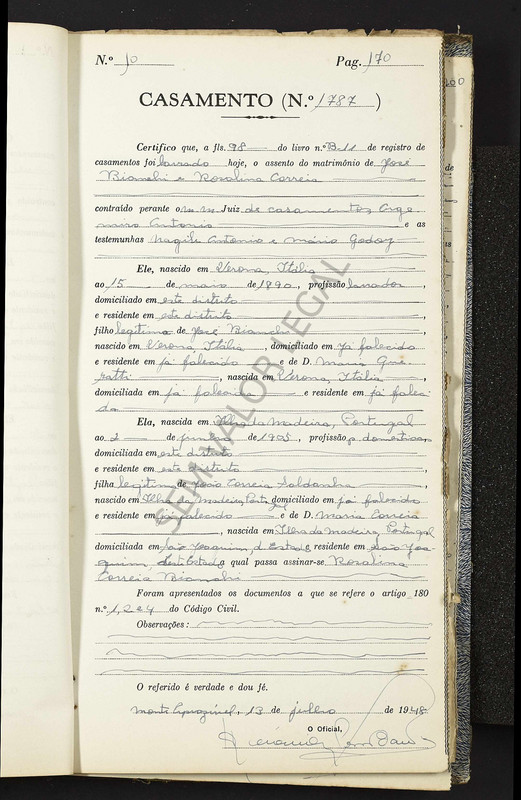 N.º 10 Pag. 170
CASAMENTO (N.º 1787)
Certifico que, a fls. 98 do livro n.º B-11 de registro de
casamentos foi lavrado hoje, o assento do matrimônio de José
Bianchi e Rosalina Correia
contraído perante o m.m. Juiz de casamentos, Arge
miro Antonio e as
testemunhas Nagib Antonio e Mário Godoy
Ele, nascido em Verona, Itália
ao 15 de maio de 1890, profissão lavrador,
domiciliado em este distrito
e residente em este distrito
filho legítimo de José Bianchi,
nascido em Verona, Itália, domiciliado em já falecido
e residente em já falecido e de D. Maria
, nascida em Verona, Itália,
domiciliada em já falecida e residente em já faleci
da
Ela, nascida em Ilha da Madeira, Portugal
ao 2 de de 1905, profissão p. domesticas,
domiciliada em este distrito
e residente em este distrito,
filha legítima de João Correia Saldanha,
nascido em Ilha da Madeira, Portugal domiciliado em já falecido
e residente em já falecido e de D. Maria Correia
, nascida em Ilha da Madeira, Portugal
domiciliada em São Joaquim, d. Estado e residente em São Joa
quim, deste Estado, a qual passa assinar-se Rosalina
Correia Bianchi
Foram apresentados os documentos a que se refere o artigo 180
n.º 1, 2 e 4 do Código Civil.
Observações:
O referido é verdade e dou fé.
Monte Aprazível, 13 de julho de 1948.
O Oficial,
SEM VALOR LEGAL